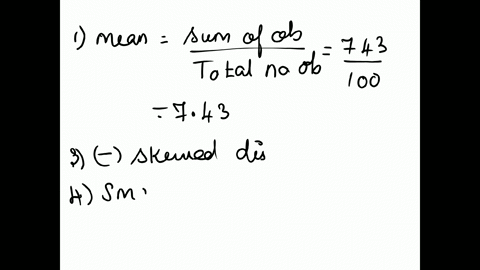 1) mean = sum of ob / Total no ob = 743 / 100
= 7.43
3) (-) skewed dis
4) Sm